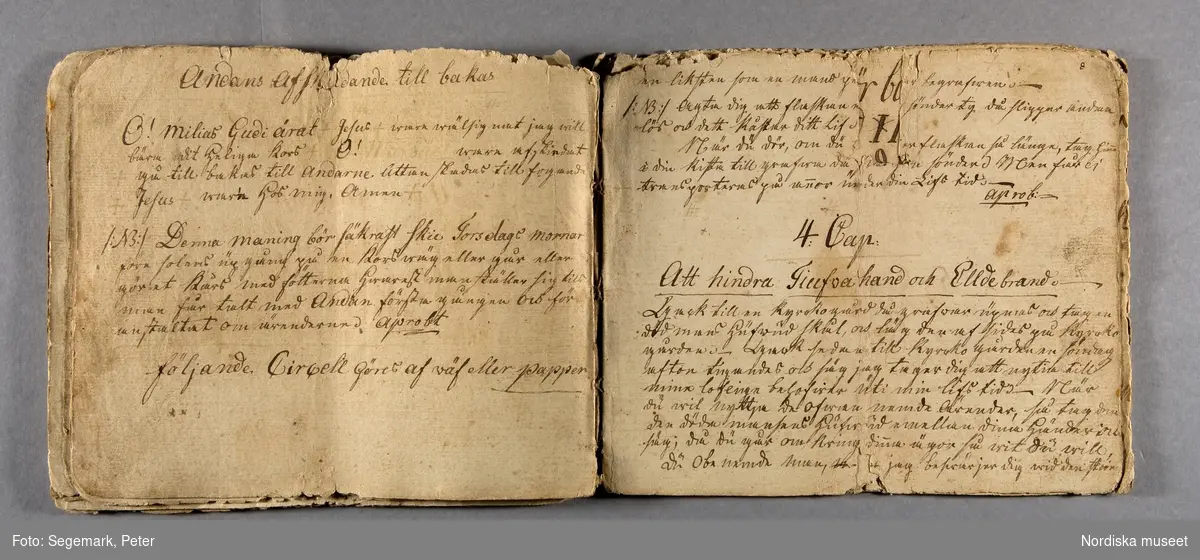 Andans affskidande till bakas
O! milias Gudi ärat + Jesus + ware wälsignat jag will
bära ditt Heliga Kors + O! ware afskindat
gu till bakas till Andarne uttan skada till foganda
Jesus + ware Hos mig. Amen +
/:NB:/ Denna maning bör säkrast skie Torsdags mornar
före solens up gang på en Kors wäg eller gär eller
gör et Kårs med fötterna hwarest man ställer sig till
man får talt med Andan första gången och för
anstaltat om ärenderne. Aprobt
följande Circell Göres af wäf eller papper
8
en liksten som en mans begrafwen
/:NB:/ Agta dig att flaskan sönder ty du slipper andan
lös och dett kåstar ditt lif
När du dör, om du har flaskan så länge, tag
i din kista till grafwen sönder. Men får ei
transporteras på annor under din Lifs tid
aprob:
4. Cap.
Att hindra Tiufwahand och Elldebrand
Gack till en Kyrkogård du grafwar upnas och tag en
död mans hufwud skål, och läg den af sides på Kyrko
gården. Gack sedan till Kyrko gården en söndag
afton tigandes och säg jag tager dig att nyttia till
mine loflige behofwer uti min lifs tid. När
du wil nyttja de ofwan nemde ärender, så tag
den döda mansens hufwud emellan dina händer och
säg; du du går om kring dinna ägor så wit du will,
Du obenemde man, jag beswärjer dig wid den
Foto: Segemark, Peter
Nordiska museet